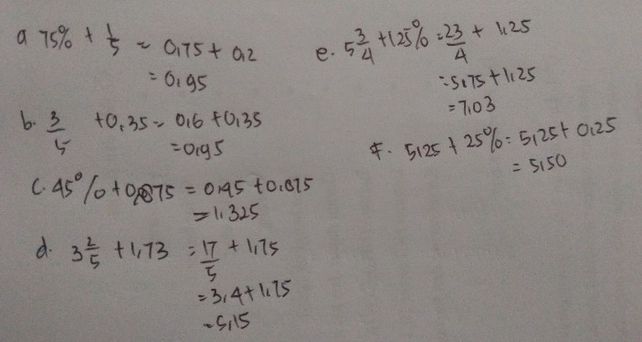 a 75% + 1/5 = 0,75 + 0,2
= 0,95
b. 3/5 + 0,35 = 0,6 + 0,35
= 0,95
c. 45% + 0,875 = 0,45 + 0,875
= 1,325
d. 3 2/5 + 1,73 = 17/5 + 1,75
= 3,4 + 1,75
= 5,15
e. 5 3/4 + 125% = 23/4 + 1,25
= 5,75 + 1,25
= 7,03
f. 5,25 + 25% = 5,25 + 0,25
= 5,50